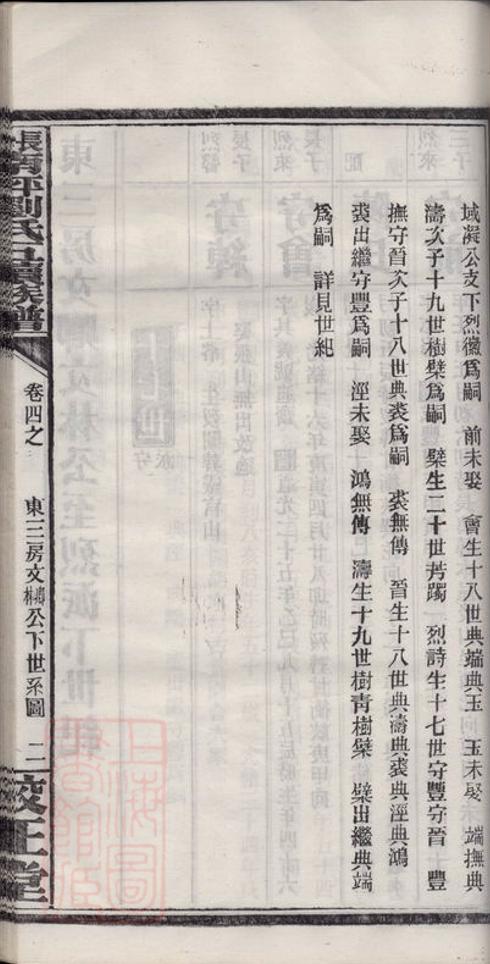 域凝公支下烈徽爲嗣　前未娶　會生十八世典端典玉　玉未娶　端撫典
濤次子十九世樹檗爲嗣　檗生二十世芳躅　烈詩生十七世守豐守晉　豐
撫守晉次子十八世典裘爲嗣　裘無傳　晉生十八世典濤典裘典涇典鴻
裘出繼守豐爲嗣　涇未娶　鴻無傳　濤生十九世樹青樹檗　檗出繼典端
爲嗣　詳見世紀
劉氏五續族譜
卷四之　東三房文　公下世系圖　二